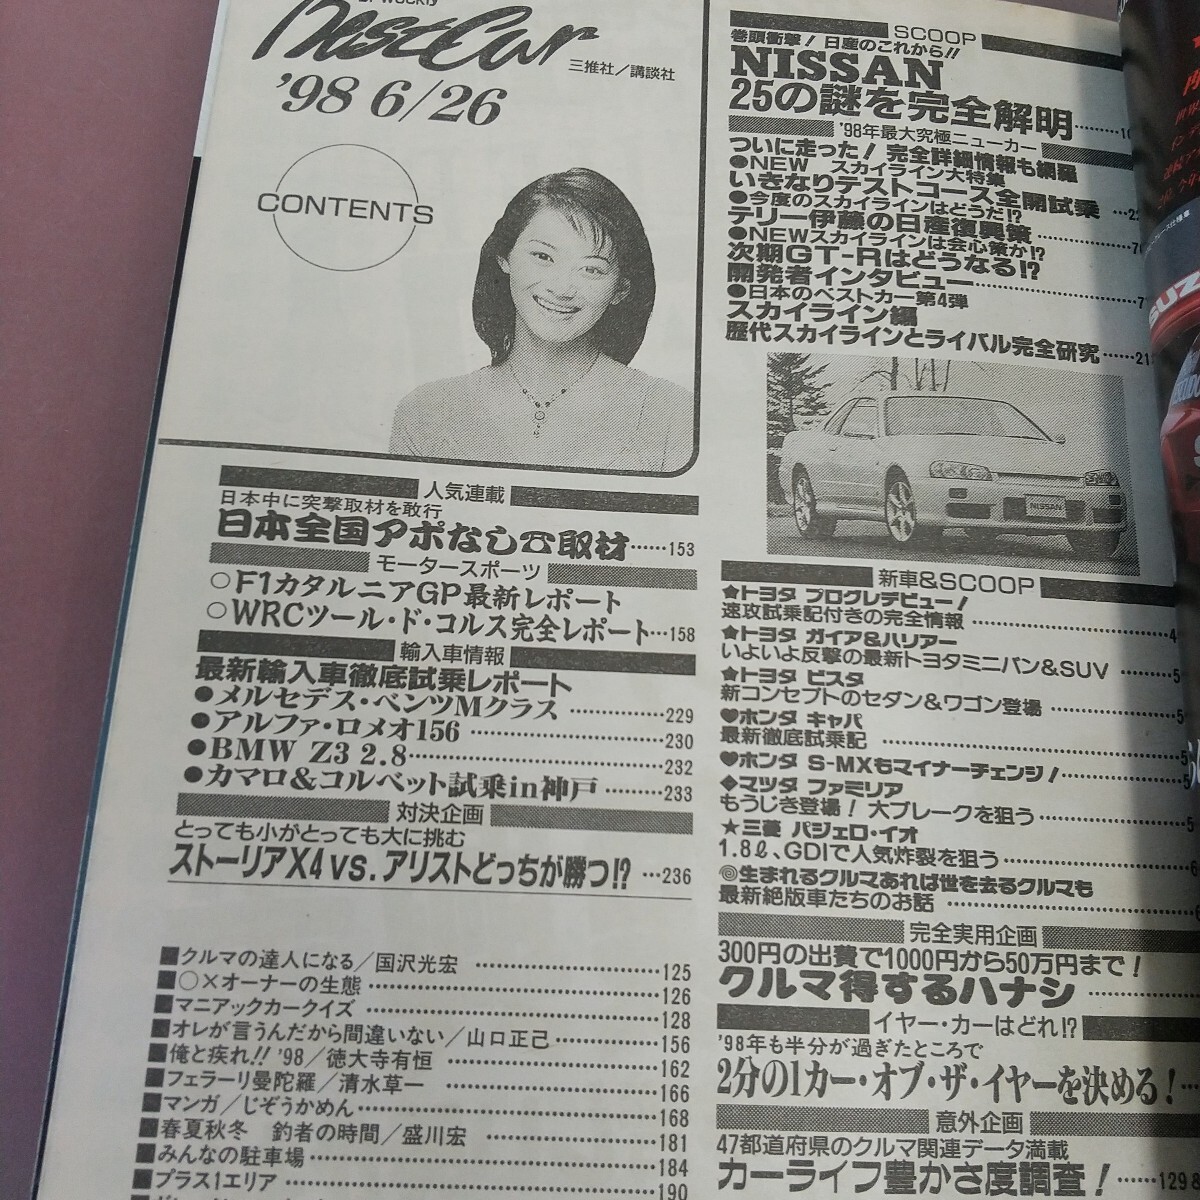 Best Car
三推社/講談社
'98 6/26
CONTENTS
人気連載
日本中に突撃取材を敢行
日本全国アポなし☎取材……153
モータースポーツ
○F1カタルニアGP最新レポート
○WRCツール・ド・コルス完全レポート…158
輸入車情報
最新輸入車徹底試乗レポート
●メルセデス・ベンツMクラス……229
●アルファ・ロメオ156……230
●BMW Z3 2.8……232
●カマロ&コルベット試乗in神戸……233
対決企画
とっても小がとっても大に挑む
ストーリアX4 vs. アリストどっちが勝つ!?…236
■クルマの達人になる/国沢光宏……125
■○×オーナーの生態……126
■マニアックカークイズ……128
■オレが言うんだから間違いない/山口正己……156
■俺と疾れ!! '98/徳大寺有恒……162
■フェラーリ曼陀羅/清水草一……166
■マンガ/じぞうかめん……168
■春夏秋冬 釣者の時間/盛川宏……181
■みんなの駐車場……184
■プラス1エリア……190
SCOOP
巻頭衝撃! 日産のこれから!!
NISSAN
25の謎を完全解明……
'98年最大究極ニューカー
ついに走った! 完全詳細情報も網羅
●NEW スカイライン大特集
いきなりテストコース全開試乗…
●今度のスカイラインはどうだ!?
テリー伊藤の日産復興策……
●NEWスカイラインは会心策か!?
次期GT-Rはどうなる!?
開発者インタビュー……
●日本のベストカー第4弾
スカイライン編
歴代スカイラインとライバル完全研究……
NISSAN
新車&SCOOP
★トヨタ プログレデビュー!
速攻試乗記付きの完全情報……
★トヨタ ガイア&ハリアー
いよいよ反撃の最新トヨタミニバン&SUV……
★トヨタ ビスタ
新コンセプトのセダン&ワゴン登場……
♥ホンダ キャパ
最新徹底試乗記……
♥ホンダ S-MXもマイナーチェンジ!……
◆マツダ ファミリア
もうじき登場! 大ブレークを狙う……
★三菱 パジェロ・イオ
1.8ℓ、GDIで人気炸裂を狙う……
◎生まれるクルマあれば世を去るクルマも
最新絶版車たちのお話……
完全実用企画
300円の出費で1000円から50万円まで!
クルマ得するハナシ……
イヤー・カーはどれ!?
'98年も半分が過ぎたところで
2分の1カー・オブ・ザ・イヤーを決める!…
意外企画
47都道府県のクルマ関連データ満載
カーライフ豊かさ度調査!……129